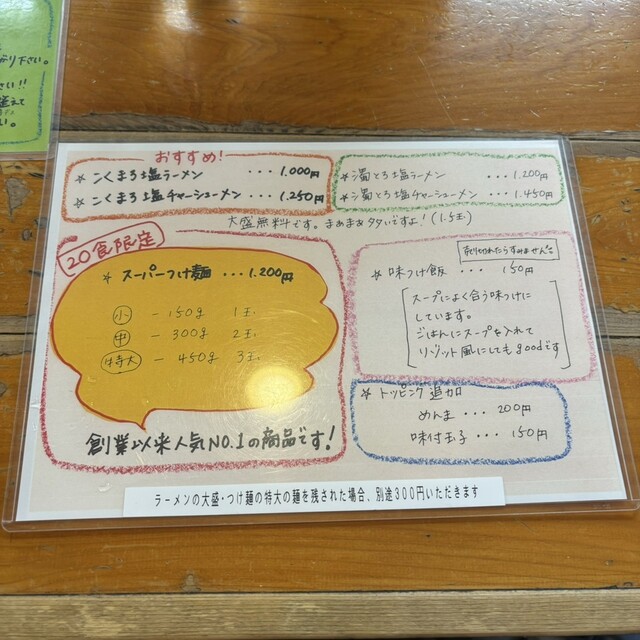 下さい。
さい!!
い。
おすすめ!
☆こくまろ塩ラーメン ・・・1.000円
☆こくまろ塩チャーシューメン ・・1.250円
☆濁とろ塩ラーメン ・・・1.200円
☆濁とろ塩チャーシューメン・・・1.450円
大盛無料です。まぁまぁ多いですよ!(1.5玉)
20食限定
☆ スーパーつけ麺 ・・・1.200円
小 - 150g 1玉
中 - 300g 2玉
特大 - 450g 3玉
創業以来人気NO.1の商品です!
売り切れたらすみません
☆ 味つけ飯 ・・・ 150円
スープによく合う味つけに
しています。
ごはんにスープを入れて
リゾット風にしてもgoodです
☆ トッピング追加
めんま・・・200円
味付玉子・・・150円
ラーメンの大盛・つけ麺の特大の麺を残された場合、別途300円いただきます